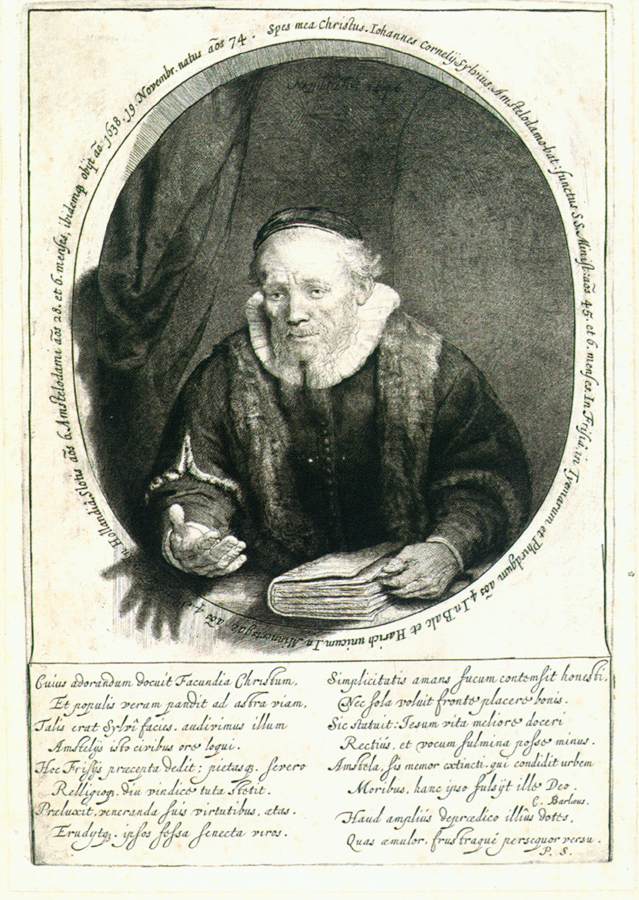 Spes mea Christus. Iohannes Cornelij Sylvius, Amstelodamobat: functus S.S. Minist: aōs 45. et 6. menses. In Frisiâ in Tyemarum et Phirdgum aōs 4. In Balc et Harich unicum. In Minnertsga, aōs 4. Slotis aōs 6. Amstelodami aōs 28. et 6. menses, ibidemq obijt aō 1638. 19. Novembr. natus aōs 74.
Rembrandt
Cuius adorandum docuit Facundia Christum,
Et populis veram pandit ad astra viam,
Talis erat Sylvî facies. audivimus illum
Amstelijs isto civibus ore loqui.
Hoc Frisijs præcepta dedit; pietasq. severo
Relligioq. diu vindice tuta stetit.
Præluxit, veneranda suis virtutibus, ætas.
Erudytq. ipsos fessa senecta viros.
Simplicitatis amans fucum contemsit honesti,
Nec sola voluit fronte placere bonis.
Sic statuit: Iesum vita meliore doceri
Rectiùs, et vocum fulmina posse minus.
Amstela, sis memor extincti, qui condidit urbem
Moribus, hanc ipso fulsijt ille Deo.
C. Barlæus.
Haud ampliùs deprædico illîus dotes,
Quas æmulor, frustraque persequor versu.
P. S.